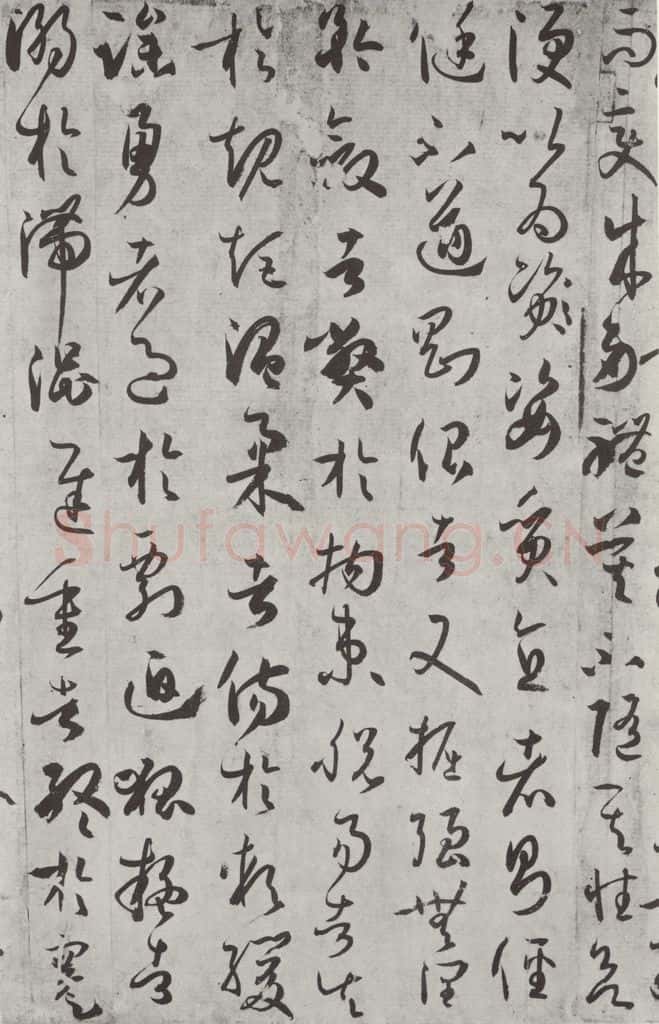 而變成多體莫不隨其性欲
便以為姿質直者則俓
侹不遒剛佷者又掘強無潤
矜斂者弊於拘束脫易者失
於規矩溫柔者傷於軟緩
躁勇者過於剽迫狐疑者
溺於滯澀遲重者終於蹇
Shufawang.CN